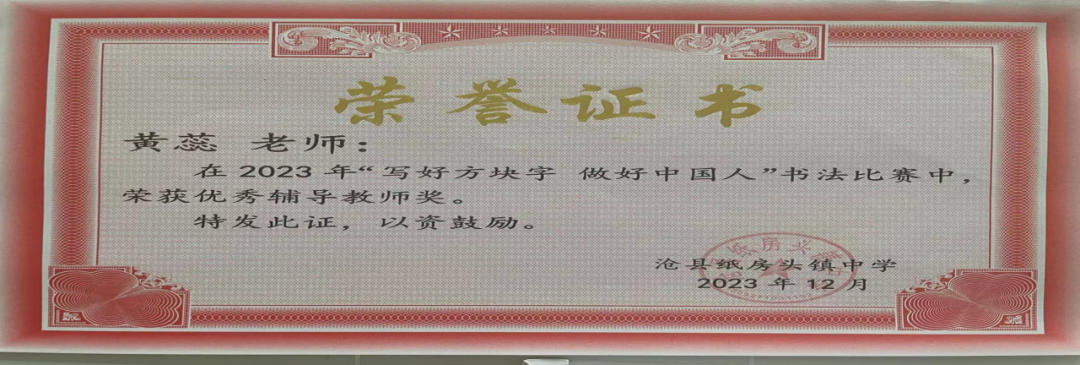 荣誉证书
黄蕊 老师：
在 2023 年“写好方块字 做好中国人”书法比赛中，
荣获优秀辅导教师奖。
特发此证，以资鼓励。
沧县纸房头镇中学
2023 年 12 月